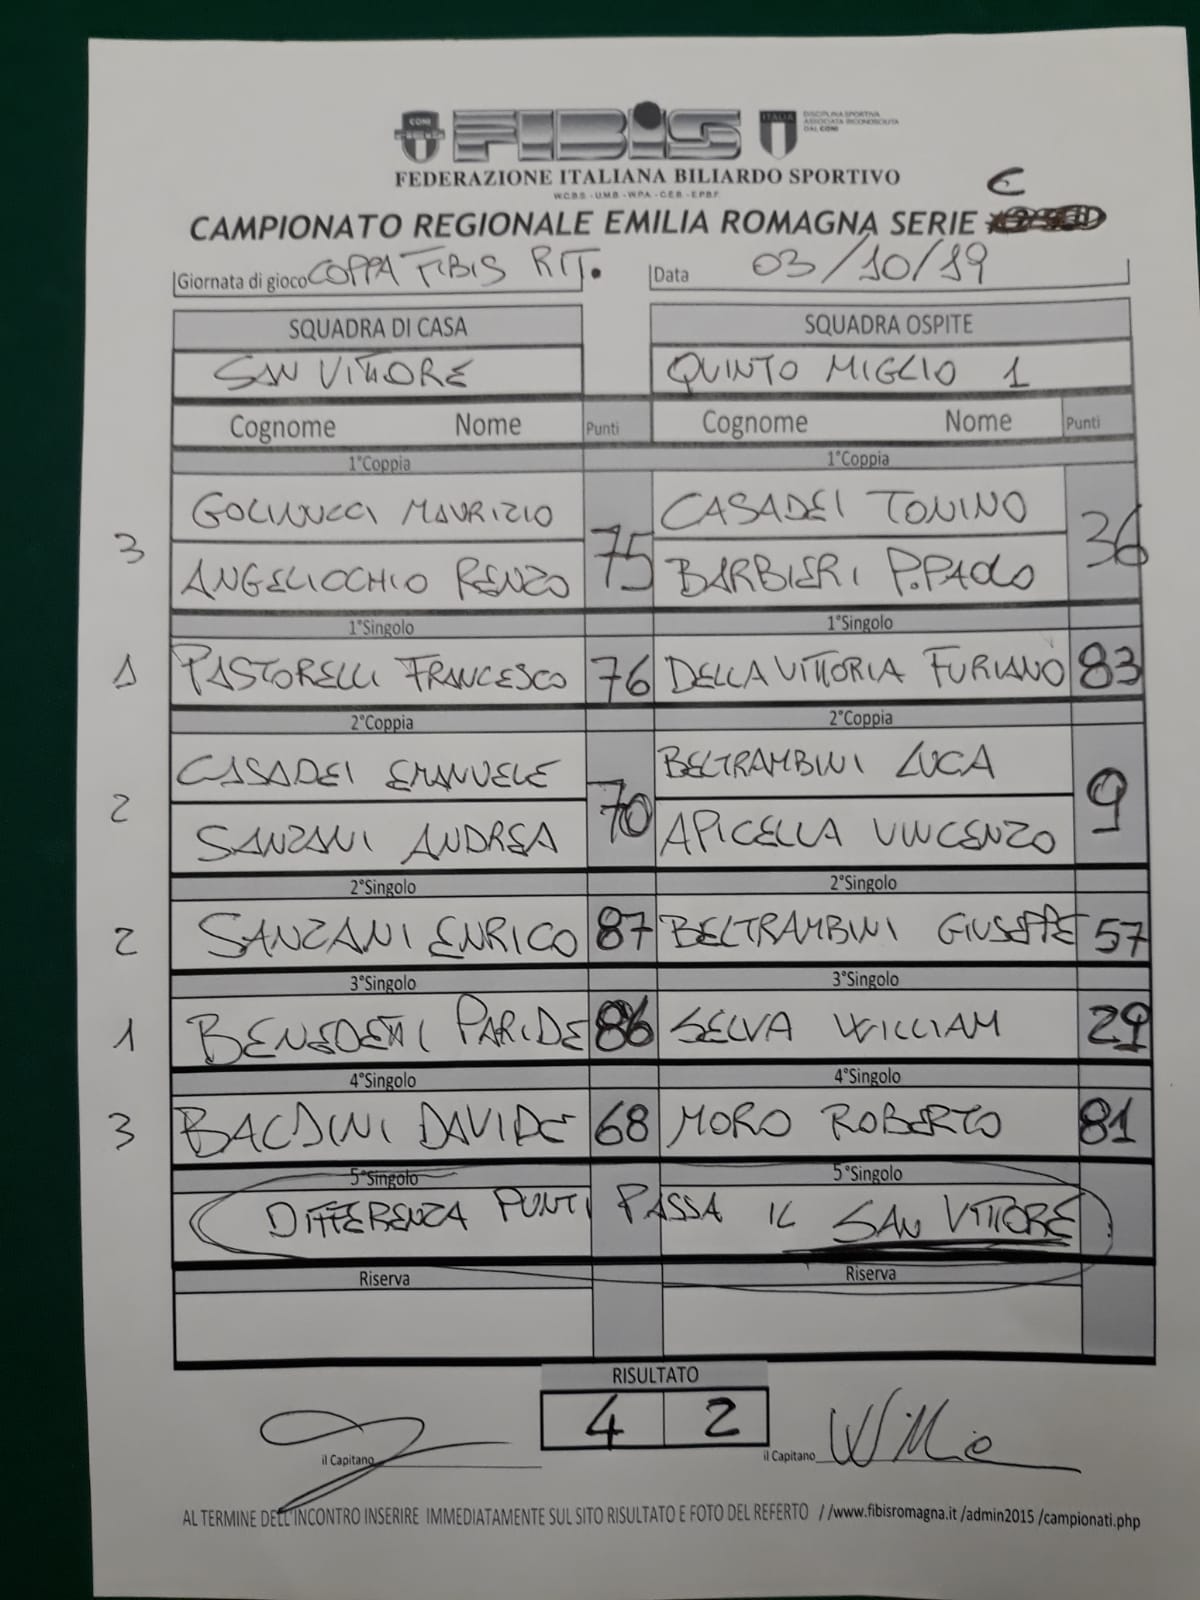 CONI
FIBIS
ITALIA
DISCIPLINA SPORTIVA
ASSOCIATA RICONOSCIUTA
DAL CONI
FEDERAZIONE ITALIANA BILIARDO SPORTIVO
W.C.B.S - U.M.B - W.P.A - C.E.B - E.P.B.F.
CAMPIONATO REGIONALE EMILIA ROMAGNA SERIE C
Giornata di gioco COPPA FIBIS RIT. Data 03/10/19
SQUADRA DI CASA SQUADRA OSPITE
SAN VITTORE QUINTO MIGLIO 1
Cognome Nome Punti Cognome Nome Punti
1°Coppia 1°Coppia
GOLINUCCI MAURIZIO CASADEI TONINO
3 75 36
ANGELICCHIO RENZO BARBIERI P.PAOLO
1°Singolo 1°Singolo
1 PASTORELLI FRANCESCO 76 DELLA VITTORIA FURIANO 83
2°Coppia 2°Coppia
CASADEI EMANUELE BELTRAMBINI LUCA
2 70 9
SANZANI ANDREA APICELLA VINCENZO
2°Singolo 2°Singolo
2 SANZANI ENRICO 87 BELTRAMBINI GIUSEPPE 57
3°Singolo 3°Singolo
1 BENEDETTI PARIDE 86 SELVA WILLIAM 29
4°Singolo 4°Singolo
3 BALDINI DAVIDE 68 MORO ROBERTO 81
5°Singolo 5°Singolo
DIFFERENZA PUNTI PASSA IL SAN VITTORE
Riserva Riserva
RISULTATO
4 2
il Capitano il Capitano
AL TERMINE DELL'INCONTRO INSERIRE IMMEDIATAMENTE SUL SITO RISULTATO E FOTO DEL REFERTO //www.fibisromagna.it /admin2015 /campionati.php